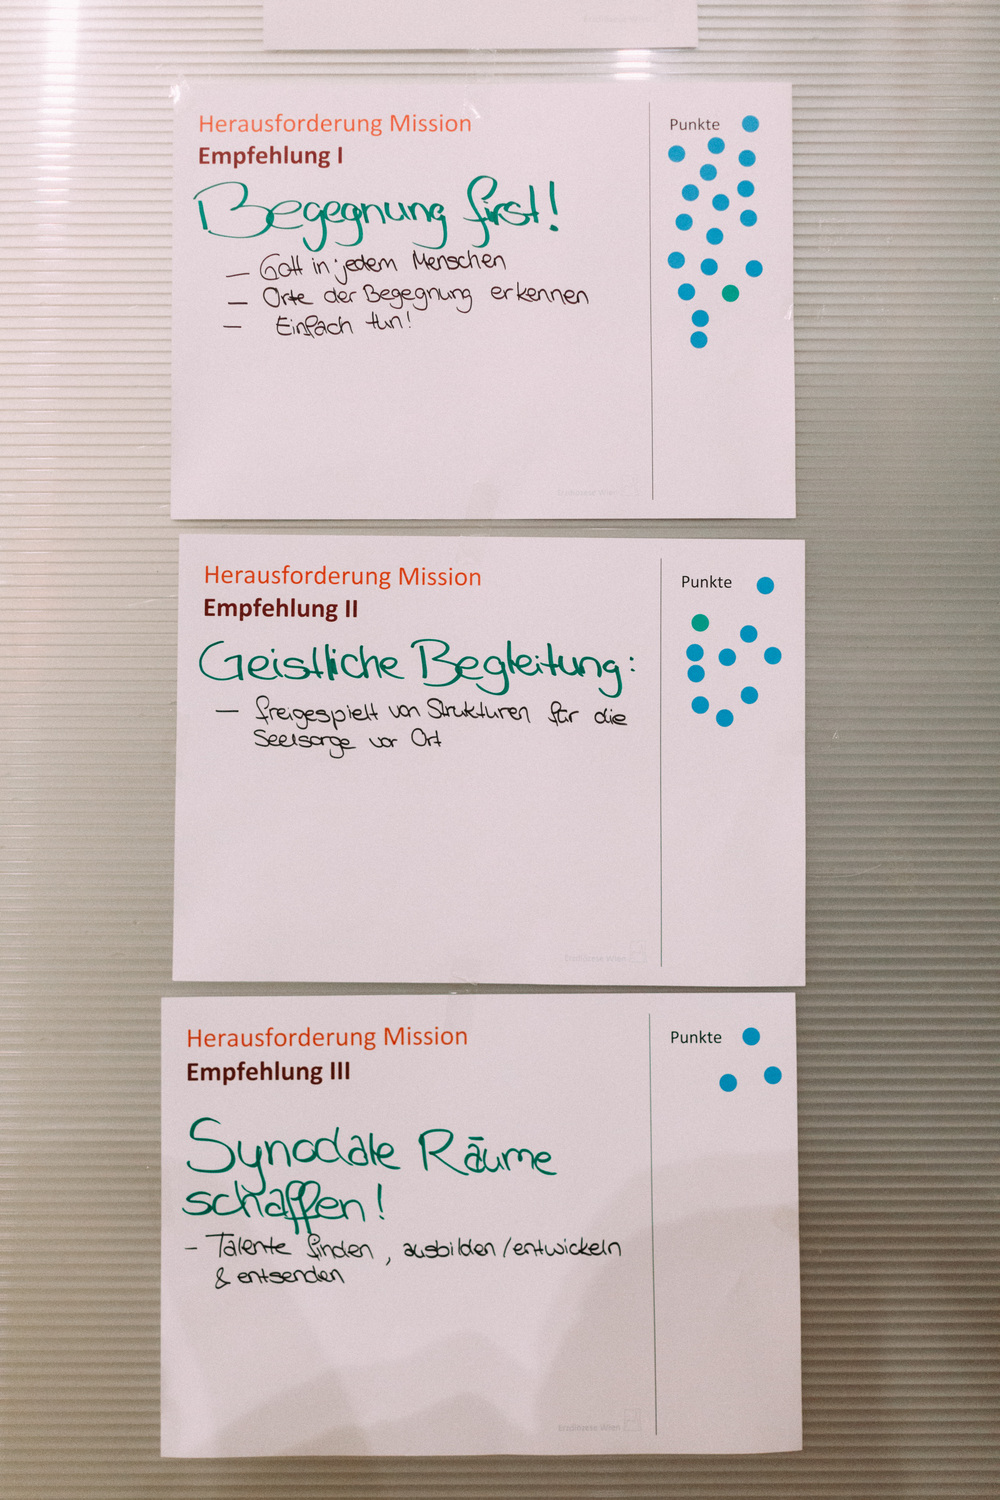 Herausforderung Mission
Empfehlung I
Punkte
Begegnung first!
— Gott in jedem Menschen
— Orte der Begegnung erkennen
— Einfach tun!
Erzdiözese Wien
Herausforderung Mission
Empfehlung II
Punkte
Geistliche Begleitung:
— freigespielt von Strukturen für die
Seelsorge vor Ort
Erzdiözese Wien
Herausforderung Mission
Empfehlung III
Punkte
Synodale Räume
schaffen!
- Talente finden, ausbilden/entwickeln
& entsenden
Erzdiözese Wien